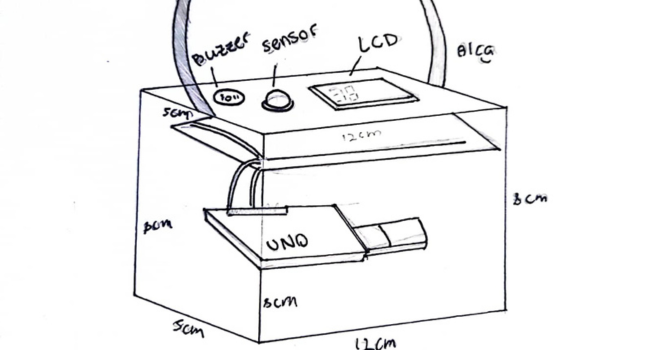 Buzzer
sensor
LCD
alça
5cm
12cm
8cm
8cm
UNO
8cm
5cm
12cm